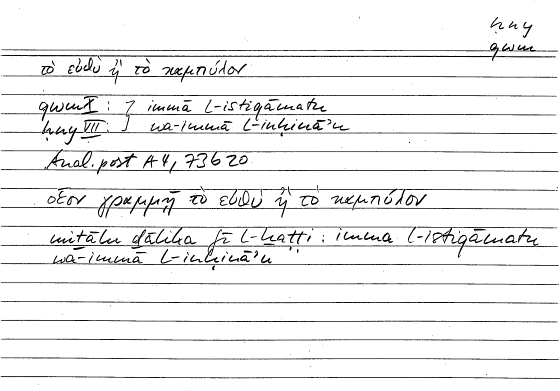 ḥny
qwm
τὸ εὐθὺ ἢ τὸ καμπύλον
qwm X : } immā l-istiqāmatu
ḥny VII : } wa-immā l-inḥinā’u
Anal. post A 4, 73 b 20
οἷον γραμμῇ τὸ εὐθὺ ἢ τὸ καμπύλον
miṯālu ḏālika fī l-ḫaṭṭi : imma l-istiqāmatu
wa-immā l-inḥinā’u